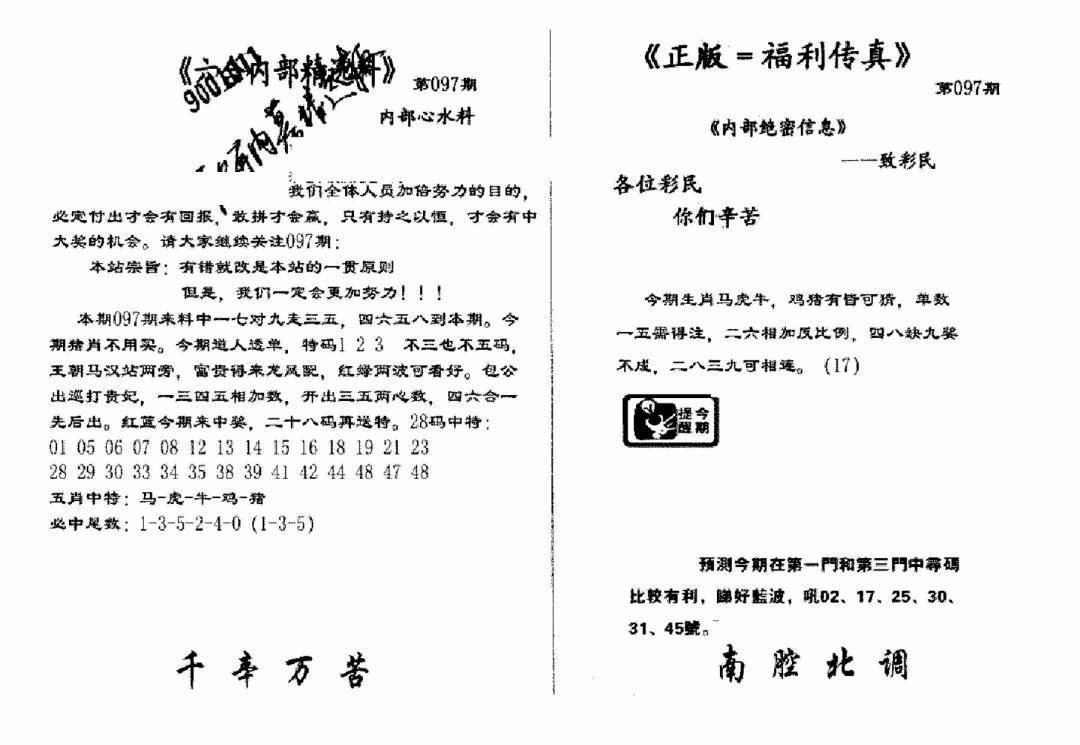 内部精选料》
第097期
内部心水料
我们全体人员加倍努力的目的，
必定付出才会有回报，敢拼才会赢，只有持之以恒，才会有中
大奖的机会。请大家继续关注097期：
本站宗旨：有错就改是本站的一贯原则
但是，我们一定会更加努力！！！
本期097期来料中一七对九走三五，四六五八到本期。今
期猪肖不用买。今期道人透单，特码1 2 3 不三也不五码，
王朝马汉站两旁，富贵得来龙凤配，红绿两波可看好。包公
出巡打贵妃，一三四五相加数，开出三五两心数，四六合一
先后出。红蓝今期来中奖，二十八码再送特。28码中特：
01 05 06 07 08 12 13 14 15 16 18 19 21 23
28 29 30 33 34 35 38 39 41 42 44 48 47 48
五肖中特：马-虎-牛-鸡-猪
必中尾数：1-3-5-2-4-0 (1-3-5)
千辛万苦
《正版=福利传真》
第097期
《内部绝密信息》
——致彩民
各位彩民
你们辛苦
今期生肖马虎牛，鸡猪有皆可猜，单数
一五需得注，二六相加反比例，四八缺九奖
不成，二八三九可相连。(17)
今期
提醒
預測今期在第一門和第三門中尋碼
比較有利，睇好藍波，吼02、17、25、30、
31、45號。
南腔北调